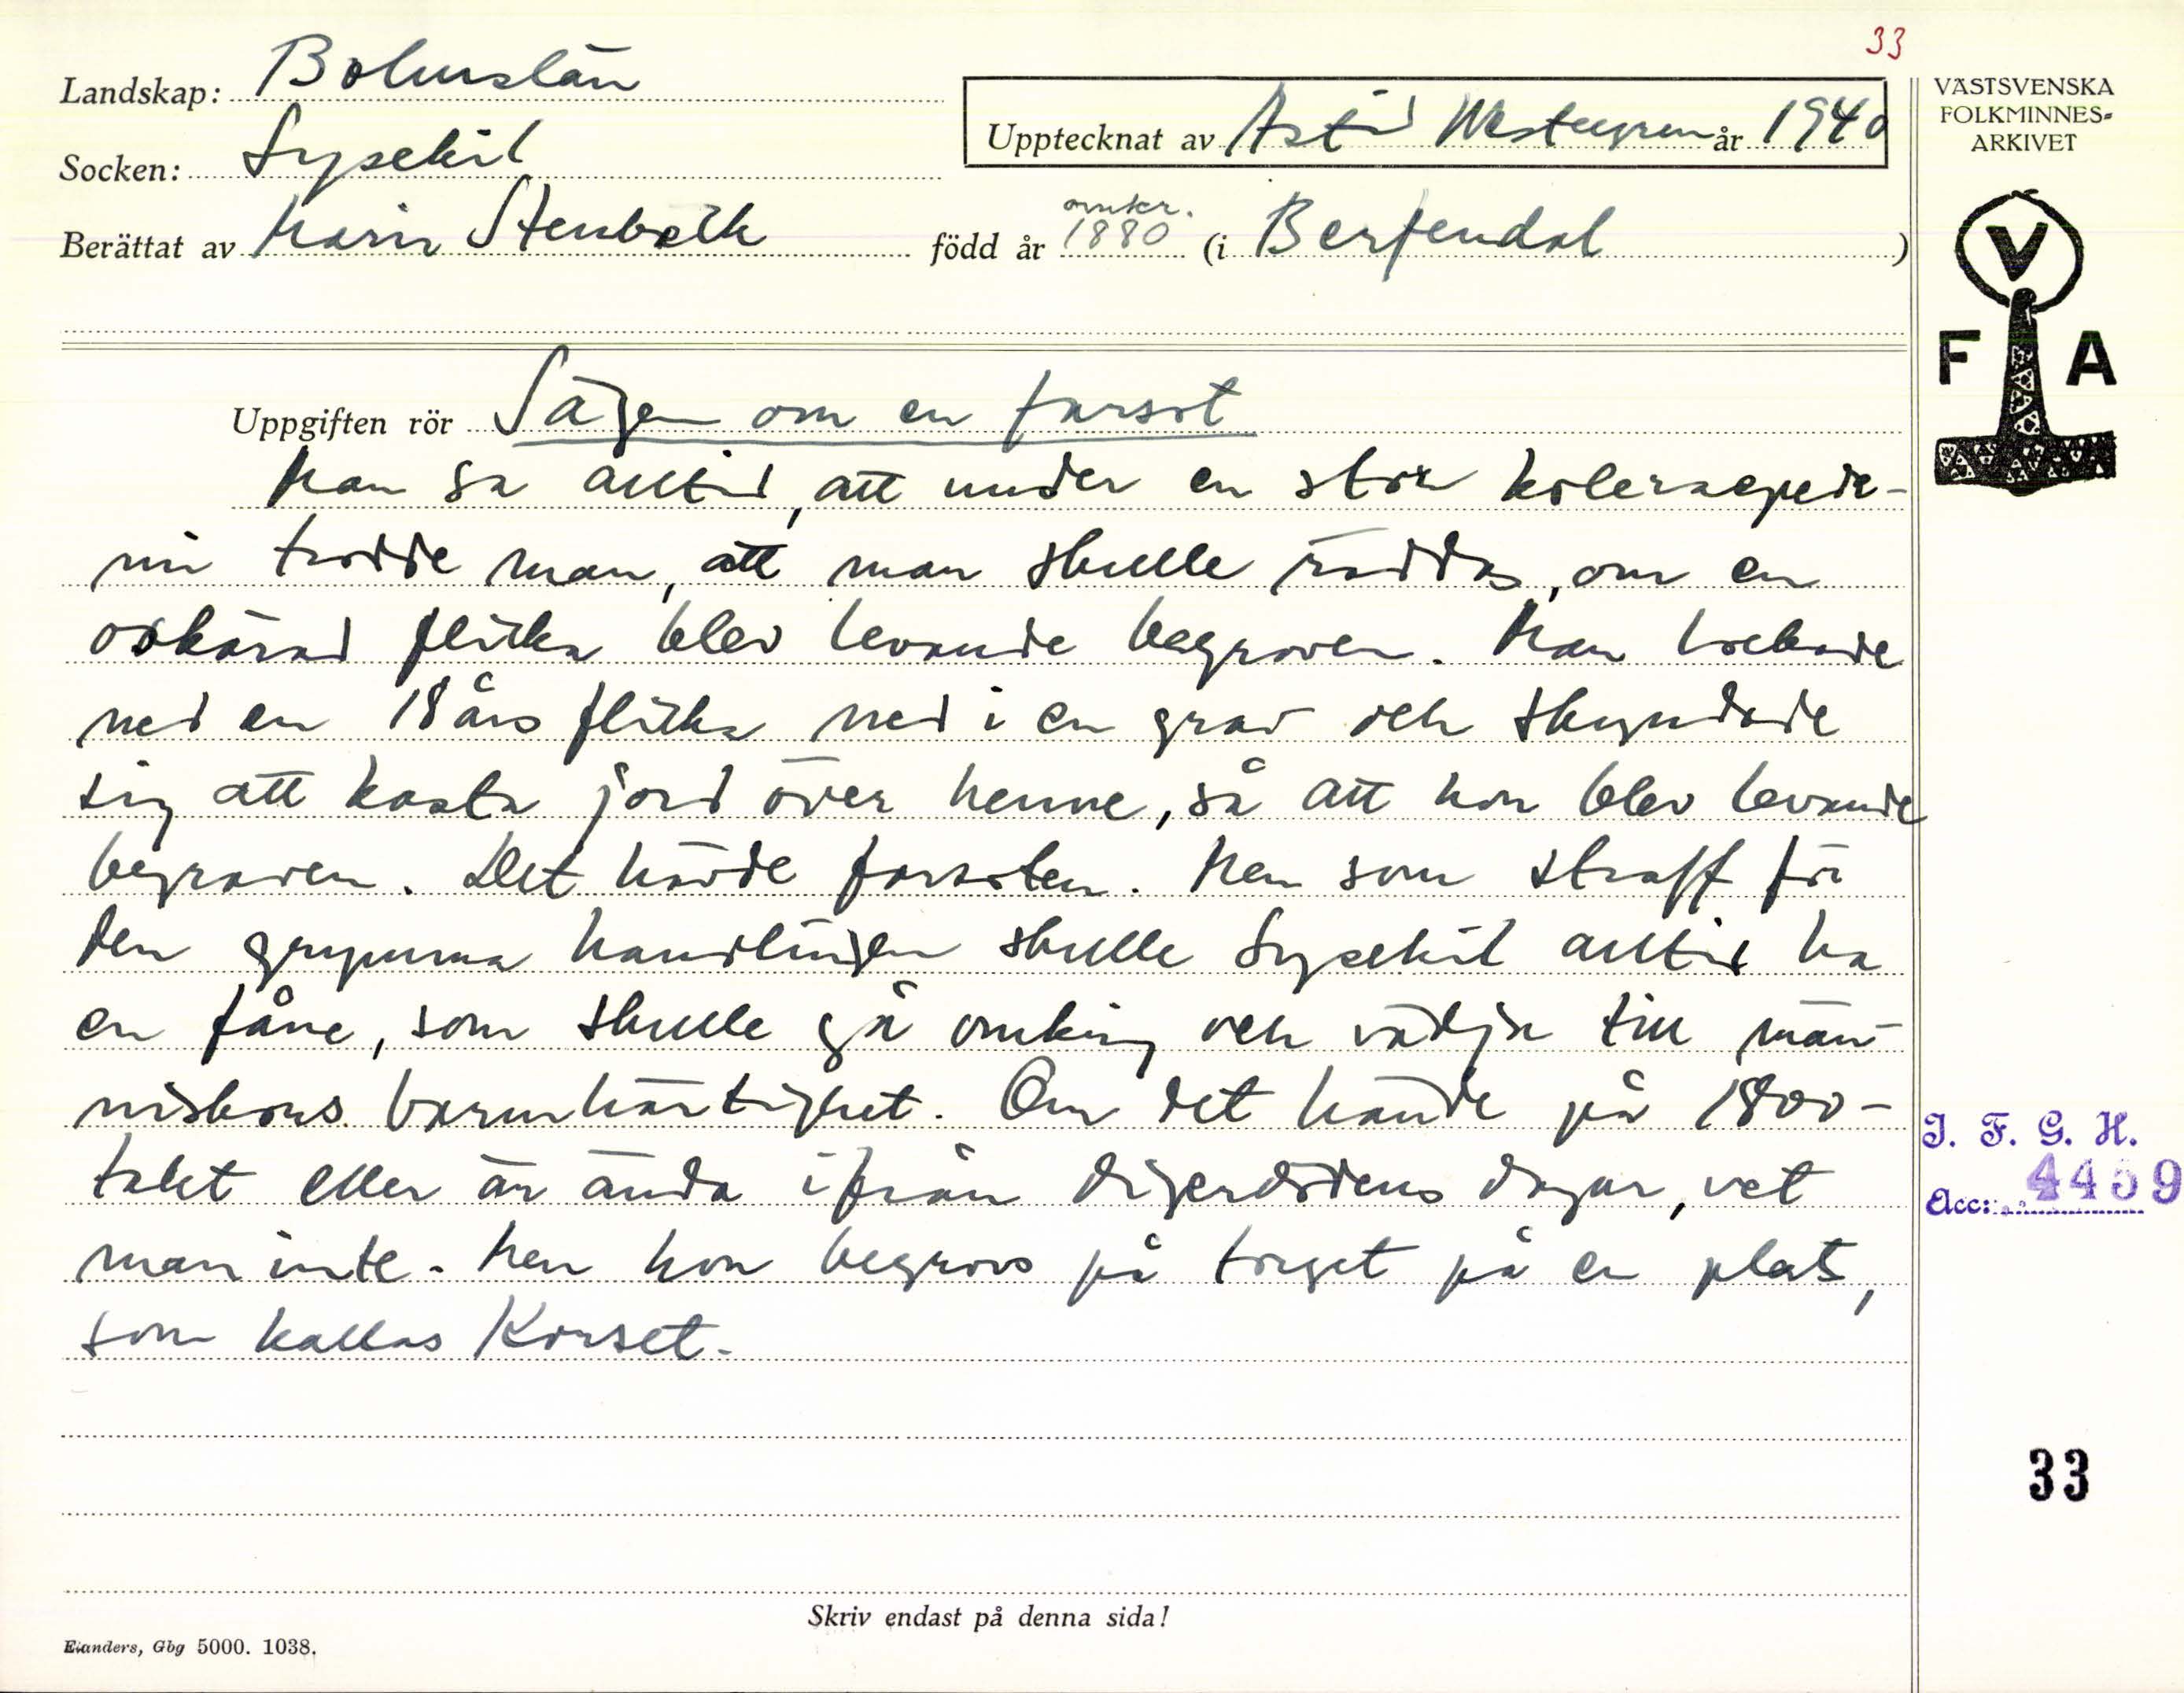 33
Landskap: Bohuslän
Socken: Lysekil
Berättat av Karin Stenbäck född år omkr. 1880 (i Berfendal)
Upptecknat av Astrid Westergren år 1940
VÄSTSVENSKA
FOLKMINNES-
ARKIVET
V
F A
Uppgiften rör Sägen om en farsot
Man sa alltid, att under en stor koleraepide-
mi trodde man, att man skulle räddas, om en
oskärad flicka blev levande begraven. Man lockade
ned en 18 års flicka ned i en grav och skyndade
sig att kasta jord över henne, så att hon blev levande
begraven. Det hävde farsoten. Men som straff för
den grymma handlingen skulle Lysekil alltid ha
en fåne, som skulle gå omkring och vädja till män-
niskors barmhärtighet. Om det hände på 1800-
talet eller är ända ifrån digerdödens dagar, vet
man inte. Men hon begravs på torget på en plats,
som kallas Korset.
I. F. G. H.
Acc: 4459
33
Skriv endast på denna sida!
Elanders, Gbg 5000. 1038.